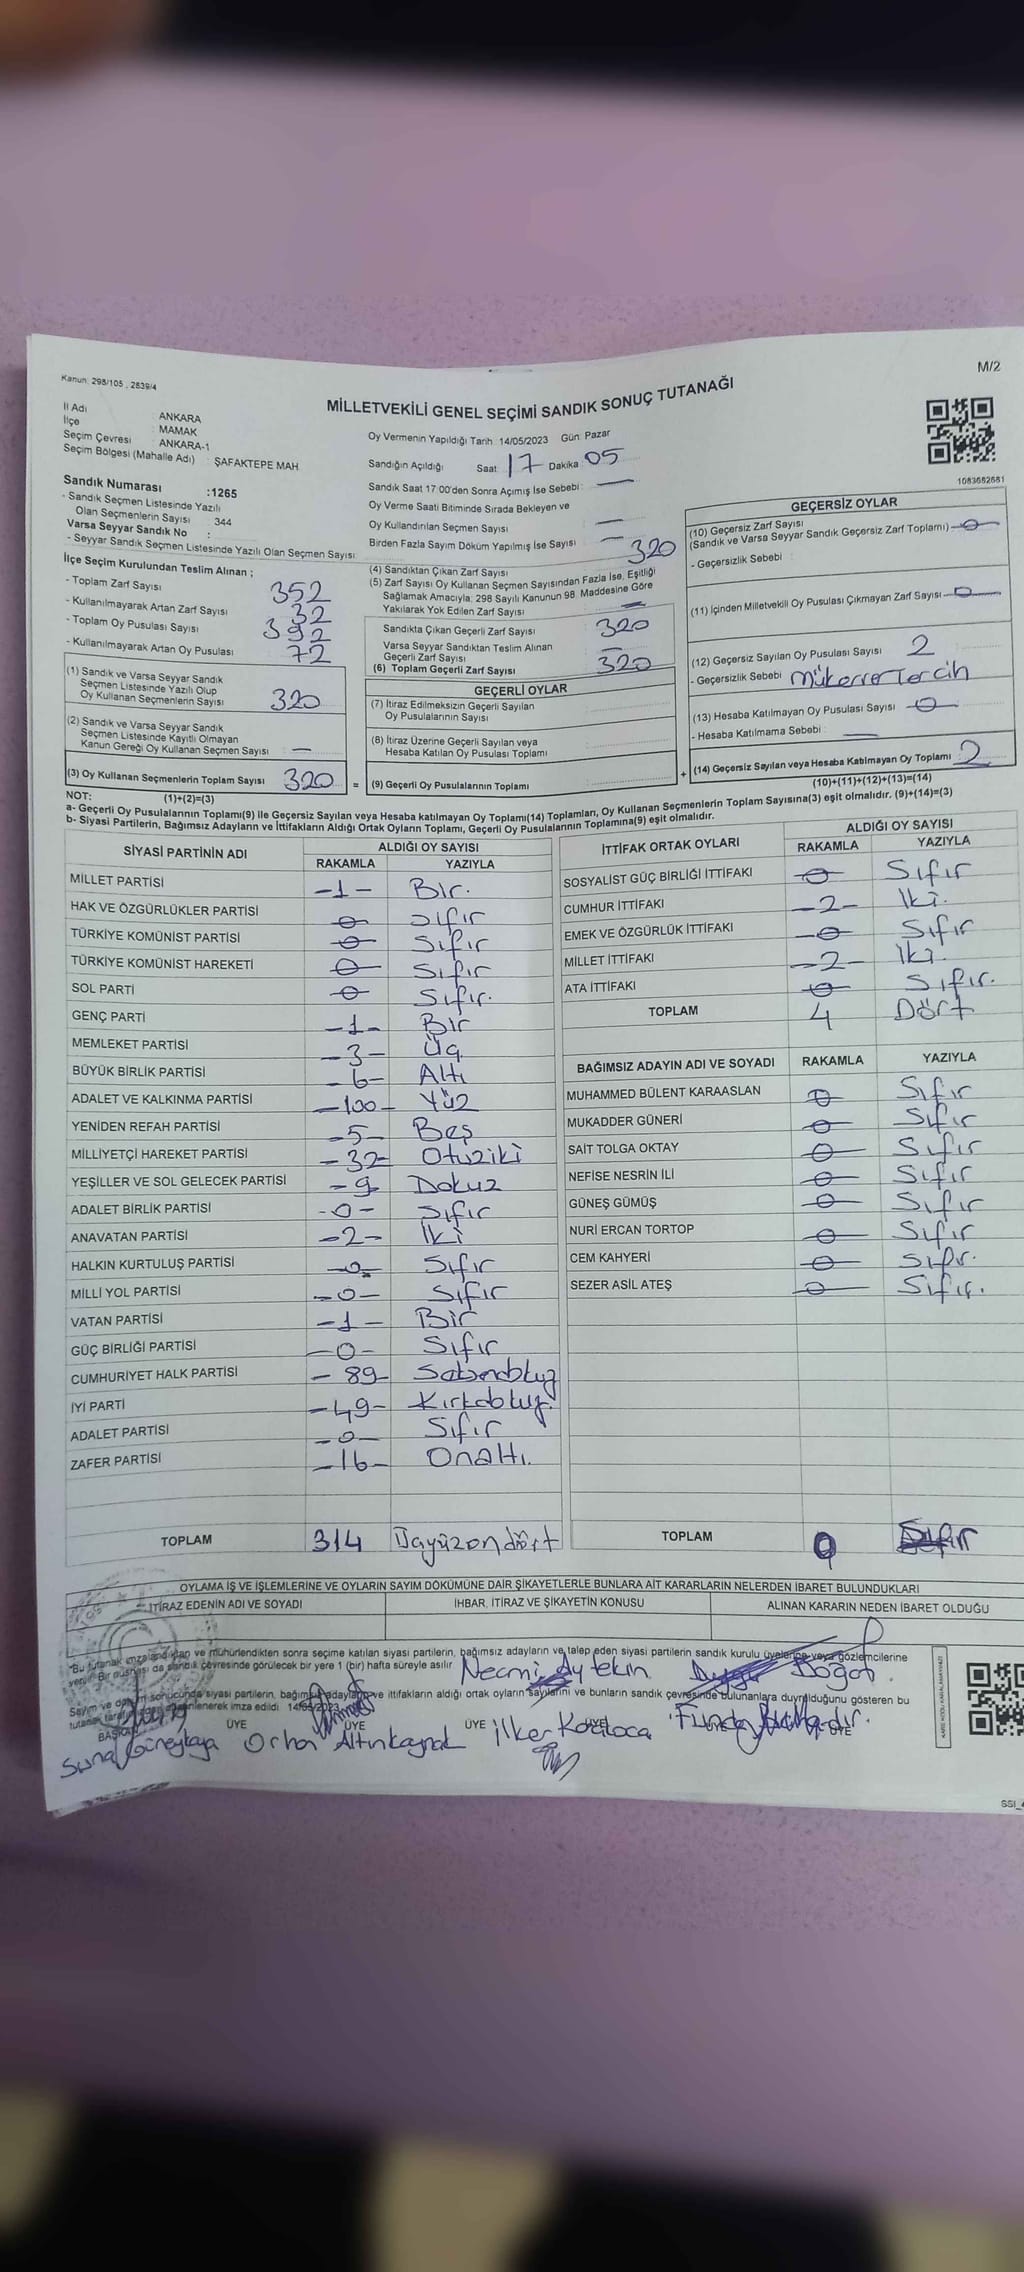 Kanun: 298/105 , 2839/4
M/2
MİLLETVEKİLİ GENEL SEÇİMİ SANDIK SONUÇ TUTANAĞI
İl Adı ANKARA
İlçe MAMAK
Seçim Çevresi ANKARA-1
Seçim Bölgesi (Mahalle Adı) : ŞAFAKTEPE MAH
Oy Vermenin Yapıldığı Tarih 14/05/2023 Gün Pazar
Sandığın Açıldığı Saat 17 Dakika 05
Sandık Saat 17 00'den Sonra Açımış İse Sebebi : —
Oy Verme Saati Bitiminde Sırada Bekleyen ve
Oy Kullandırılan Seçmen Sayısı —
Birden Fazla Sayım Döküm Yapılmış İse Sayısı —
1083682681
Sandık Numarası :1265
- Sandık Seçmen Listesinde Yazılı
Olan Seçmenlerin Sayısı : 344
Varsa Seyyar Sandık No :
- Seyyar Sandık Seçmen Listesinde Yazılı Olan Seçmen Sayısı:
İlçe Seçim Kurulundan Teslim Alınan ;
- Toplam Zarf Sayısı 352
- Kullanılmayarak Artan Zarf Sayısı 32
- Toplam Oy Pusulası Sayısı 392
- Kullanılmayarak Artan Oy Pusulası 72
(1) Sandık ve Varsa Seyyar Sandık
Seçmen Listesinde Yazılı Olup
Oy Kullanan Seçmenlerin Sayısı 320
(2) Sandık ve Varsa Seyyar Sandık
Seçmen Listesinde Kayıtlı Olmayan
Kanun Gereği Oy Kullanan Seçmen Sayısı : —
(3) Oy Kullanan Seçmenlerin Toplam Sayısı 320
(1)+(2)=(3)
(4) Sandıktan Çıkan Zarf Sayısı 320
(5) Zarf Sayısı Oy Kullanan Seçmen Sayısından Fazla İse, Eşitliği
Sağlamak Amacıyla; 298 Sayılı Kanunun 98. Maddesine Göre
Yakılarak Yok Edilen Zarf Sayısı —
Sandıkta Çıkan Geçerli Zarf Sayısı 320
Varsa Seyyar Sandıktan Teslim Alınan
Geçerli Zarf Sayısı —
(6) Toplam Geçerli Zarf Sayısı 320
GEÇERLİ OYLAR
(7) İtiraz Edilmeksizin Geçerli Sayılan
Oy Pusulalarının Sayısı
(8) İtiraz Üzerine Geçerli Sayılan veya
Hesaba Katılan Oy Pusulası Toplamı
= (9) Geçerli Oy Pusulalarının Toplamı
GEÇERSİZ OYLAR
(10) Geçersiz Zarf Sayısı
(Sandık ve Varsa Seyyar Sandık Geçersiz Zarf Toplamı) 0
- Geçersizlik Sebebi :
(11) İçinden Milletvekili Oy Pusulası Çıkmayan Zarf Sayısı 0
(12) Geçersiz Sayılan Oy Pusulası Sayısı 2
- Geçersizlik Sebebi mükerrer Tercih
(13) Hesaba Katılmayan Oy Pusulası Sayısı 0
- Hesaba Katılmama Sebebi : —
+ (14) Geçersiz Sayılan veya Hesaba Katılmayan Oy Toplamı 2
(10)+(11)+(12)+(13)=(14)
NOT:
a- Geçerli Oy Pusulalarının Toplamı(9) ile Geçersiz Sayılan veya Hesaba katılmayan Oy Toplamı(14) Toplamları, Oy Kullanan Seçmenlerin Toplam Sayısına(3) eşit olmalıdır. (9)+(14)=(3)
b- Siyasi Partilerin, Bağımsız Adayların ve İttifakların Aldığı Ortak Oyların Toplamı, Geçerli Oy Pusulalarının Toplamına(9) eşit olmalıdır.
SİYASİ PARTİNİN ADI ALDIĞI OY SAYISI
RAKAMLA YAZIYLA
MİLLET PARTİSİ -1- Bir.
HAK VE ÖZGÜRLÜKLER PARTİSİ 0 sıfır
TÜRKİYE KOMÜNİST PARTİSİ 0 Sıfır
TÜRKİYE KOMÜNİST HAREKETİ 0 Sıfır
SOL PARTİ 0 Sıfır.
GENÇ PARTİ -1- Bir
MEMLEKET PARTİSİ -3- Üç.
BÜYÜK BİRLİK PARTİSİ -6- Altı
ADALET VE KALKINMA PARTİSİ -100- Yüz
YENİDEN REFAH PARTİSİ -5- Beş
MİLLİYETÇİ HAREKET PARTİSİ -32- Otuziki
YEŞİLLER VE SOL GELECEK PARTİSİ -9- Dokuz
ADALET BİRLİK PARTİSİ -0- Sıfır
ANAVATAN PARTİSİ -2- İki
HALKIN KURTULUŞ PARTİSİ -0- Sıfır
MİLLİ YOL PARTİSİ -0- Sıfır
VATAN PARTİSİ -1- Bir
GÜÇ BİRLİĞİ PARTİSİ -0- Sıfır
CUMHURİYET HALK PARTİSİ -89- Seksendokuz
İYİ PARTİ -49- Kırkdokuz.
ADALET PARTİSİ -0- Sıfır
ZAFER PARTİSİ -16- Onaltı.
TOPLAM 314 Üçyüzondört
İTTİFAK ORTAK OYLARI ALDIĞI OY SAYISI
RAKAMLA YAZIYLA
SOSYALİST GÜÇ BİRLİĞİ İTTİFAKI 0 Sıfır
CUMHUR İTTİFAKI -2- İki.
EMEK VE ÖZGÜRLÜK İTTİFAKI 0 Sıfır
MİLLET İTTİFAKI -2- İki.
ATA İTTİFAKI 0 Sıfır.
TOPLAM 4 Dört
BAĞIMSIZ ADAYIN ADI VE SOYADI RAKAMLA YAZIYLA
MUHAMMED BÜLENT KARAASLAN 0 Sıfır
MUKADDER GÜNERİ 0 Sıfır
SAİT TOLGA OKTAY 0 Sıfır
NEFİSE NESRİN İLİ 0 Sıfır
GÜNEŞ GÜMÜŞ 0 Sıfır
NURİ ERCAN TORTOP 0 Sıfır
CEM KAHYERİ 0 Sıfır.
SEZER ASİL ATEŞ 0 Sıfır.
TOPLAM 0 Sıfır
OYLAMA İŞ VE İŞLEMLERİNE VE OYLARIN SAYIM DÖKÜMÜNE DAİR ŞİKAYETLERLE BUNLARA AİT KARARLARIN NELERDEN İBARET BULUNDUKLARI
İTİRAZ EDENİN ADI VE SOYADI İHBAR, İTİRAZ VE ŞİKAYETİN KONUSU ALINAN KARARIN NEDEN İBARET OLDUĞU
"Bu tutanak imzalandıktan ve mühürlendikten sonra seçime katılan siyasi partilerin, bağımsız adayların ve talep eden siyasi partilerin sandık kurulu üyelerine veya gözlemcilerine
verilir. Bir nüshası da sandık çevresinde görülecek bir yere 1 (bir) hafta süreyle asılır
Necmi Aytekin Duygu Doğat
Sayım ve döküm sonucunda siyasi partilerin, bağımsız adayların ve ittifakların aldığı ortak oyların sayılarını ve bunların sandık çevresinde bulunanlara duyrulduğunu gösteren bu
tutanak tarafımızdan düzenlenerek imza edildi 14/05/2023
BAŞKAN ÜYE ÜYE ÜYE ÜYE ÜYE
Suna Güneykaya Orhan Altınkaynak İlker Kocaloca Funda
SSI_